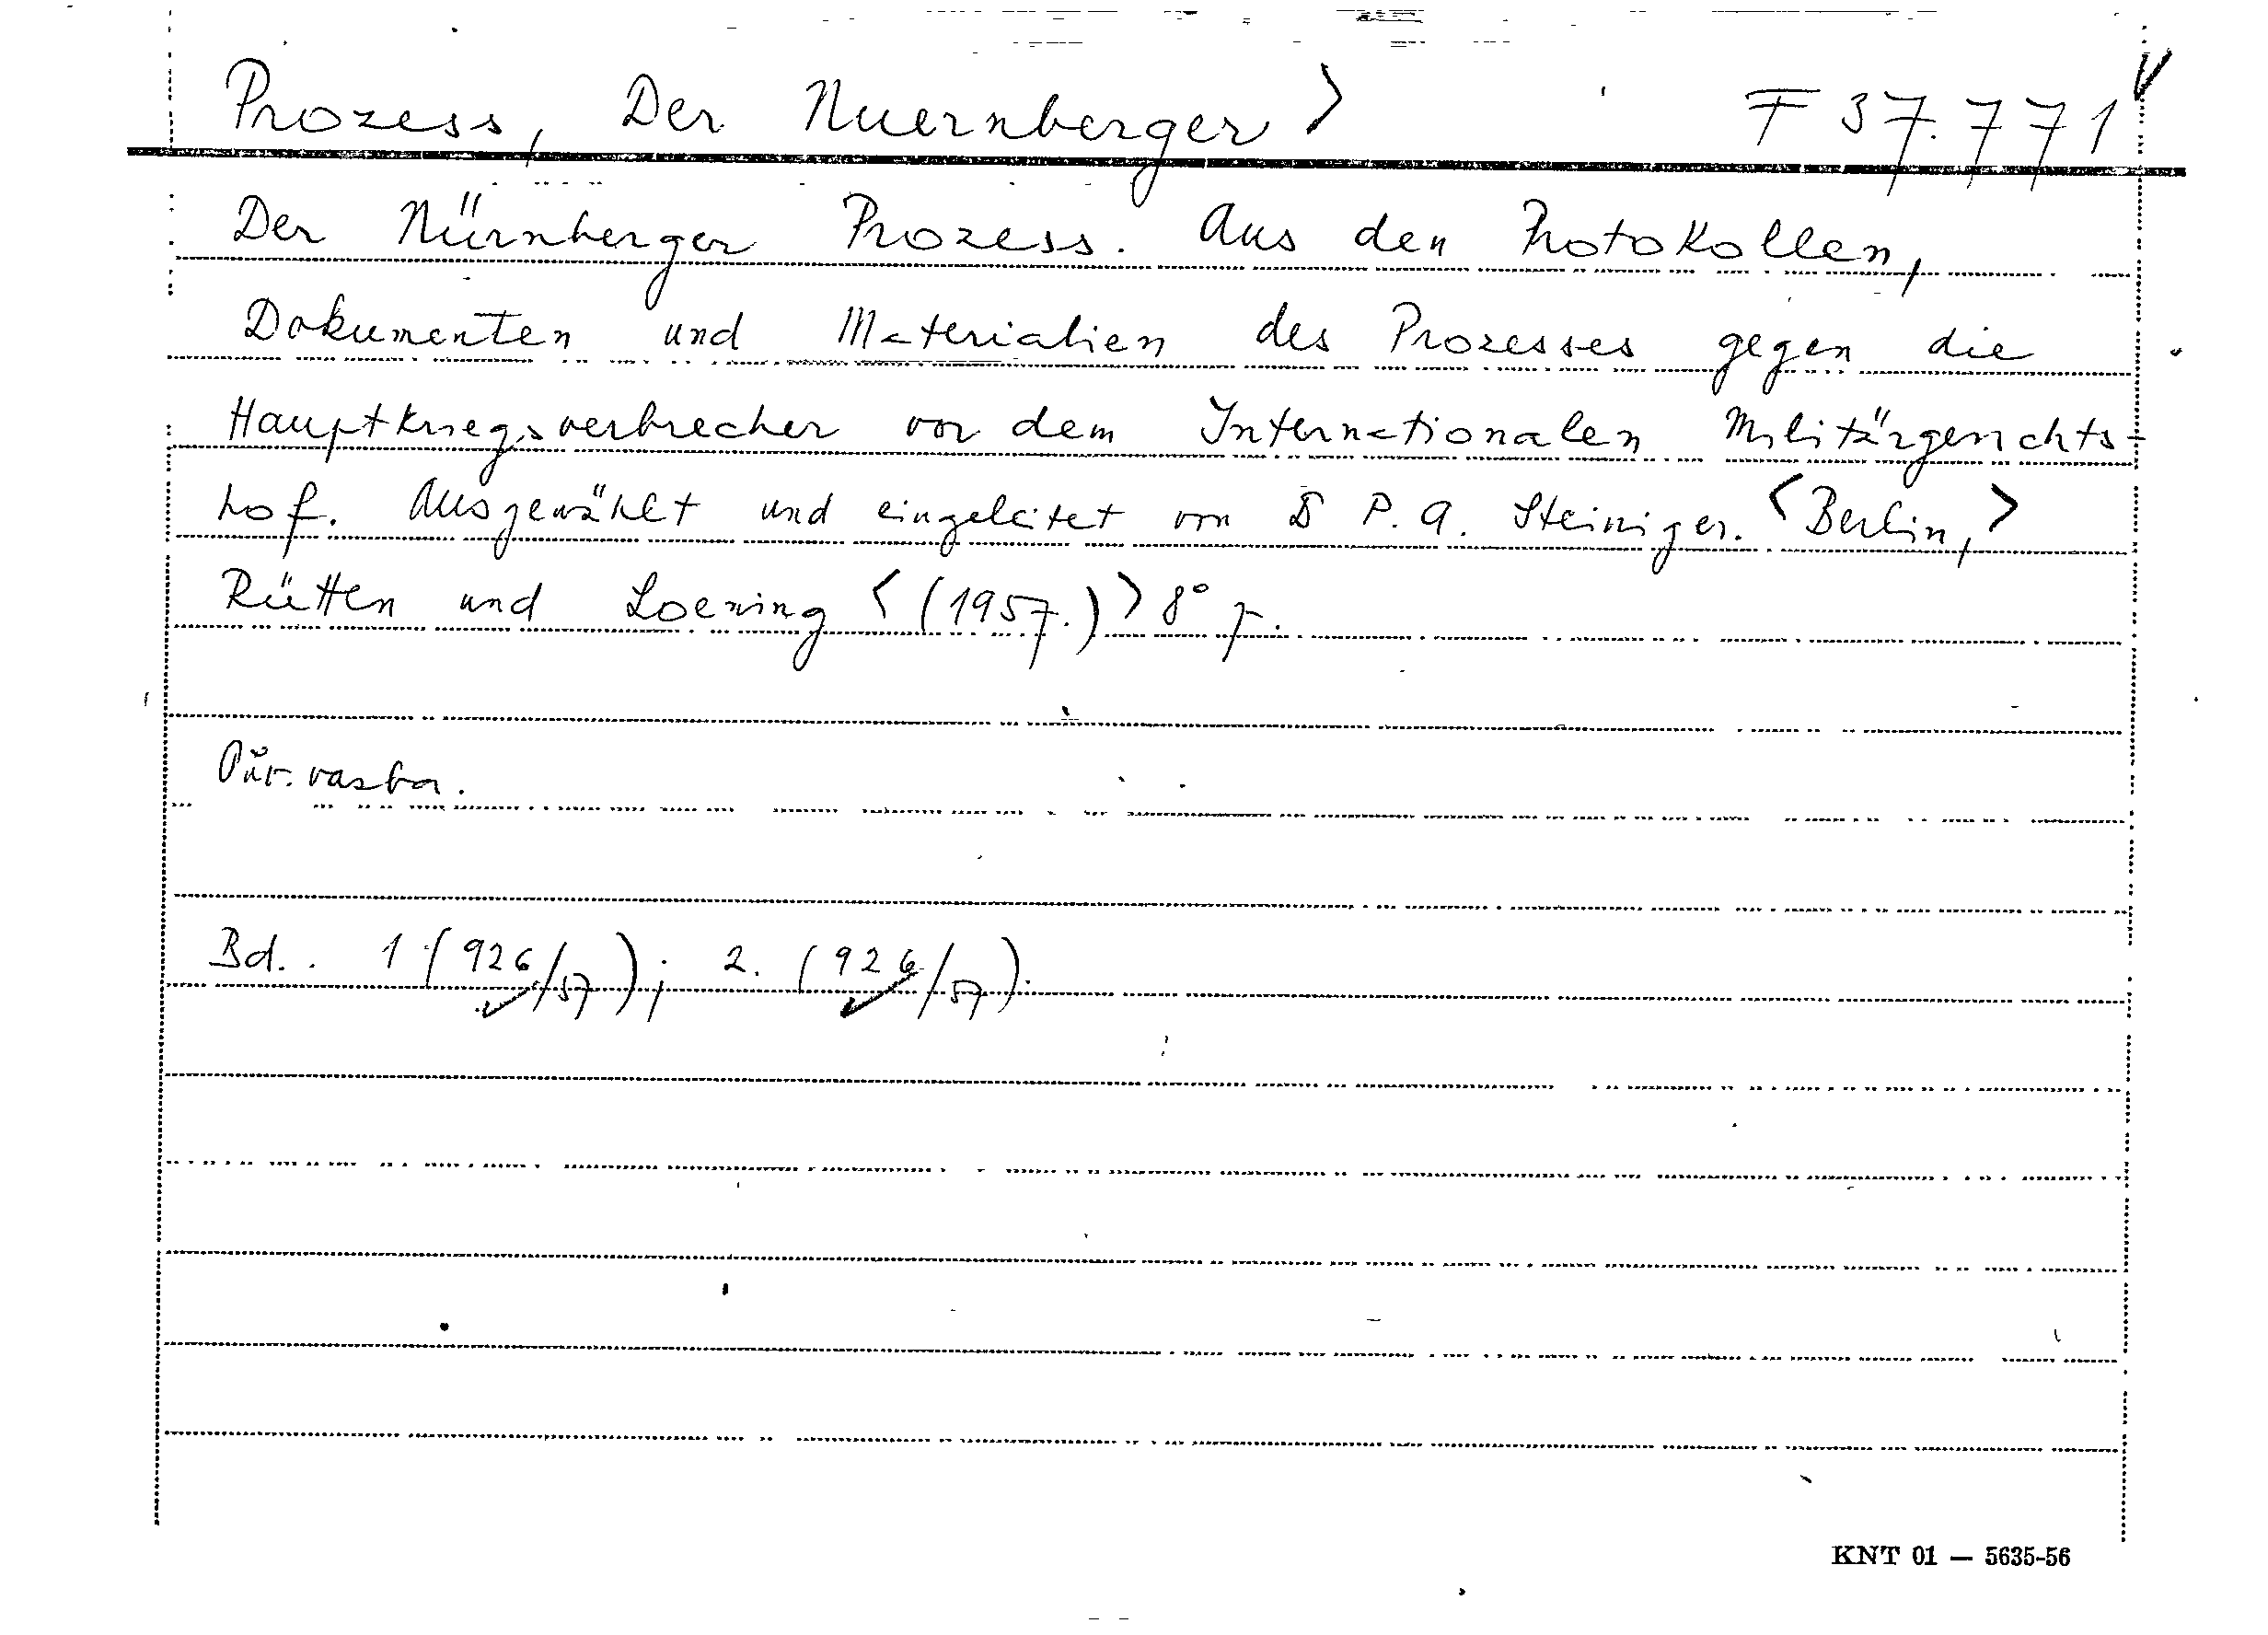 Prozess, Der Nuernberger > F 37.771
Der Nürnberger Prozess. Aus den Protokollen,
Dokumenten und Materialien des Prozesses gegen die
Hauptkriegsverbrecher vor dem Internationalen Militärgerichts-
hof. Ausgewählt und eingeleitet von P. A. Steiniger. <Berlin,>
Rütten und Loening <(1957.)> 8°
Bd. 1 (926/57); 2. (926/57).
KNT 01 — 5635-56